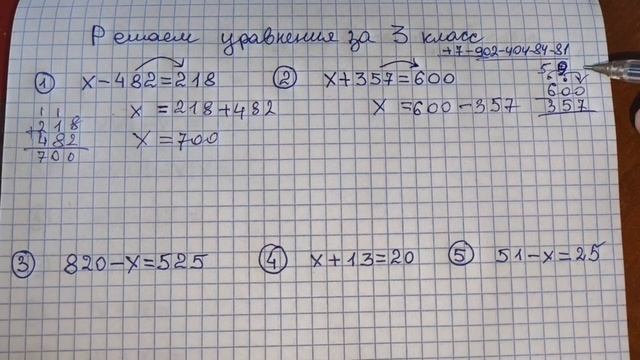 Решаем уравнения за 3 класс
+7-902-404-84-81
① x-482=218
x =218+482
x =700
1 1
+218
482
700
② x+357=600
x =600-357
600
357
③ 820-x=525
④ x+13=20
⑤ 51-x=25